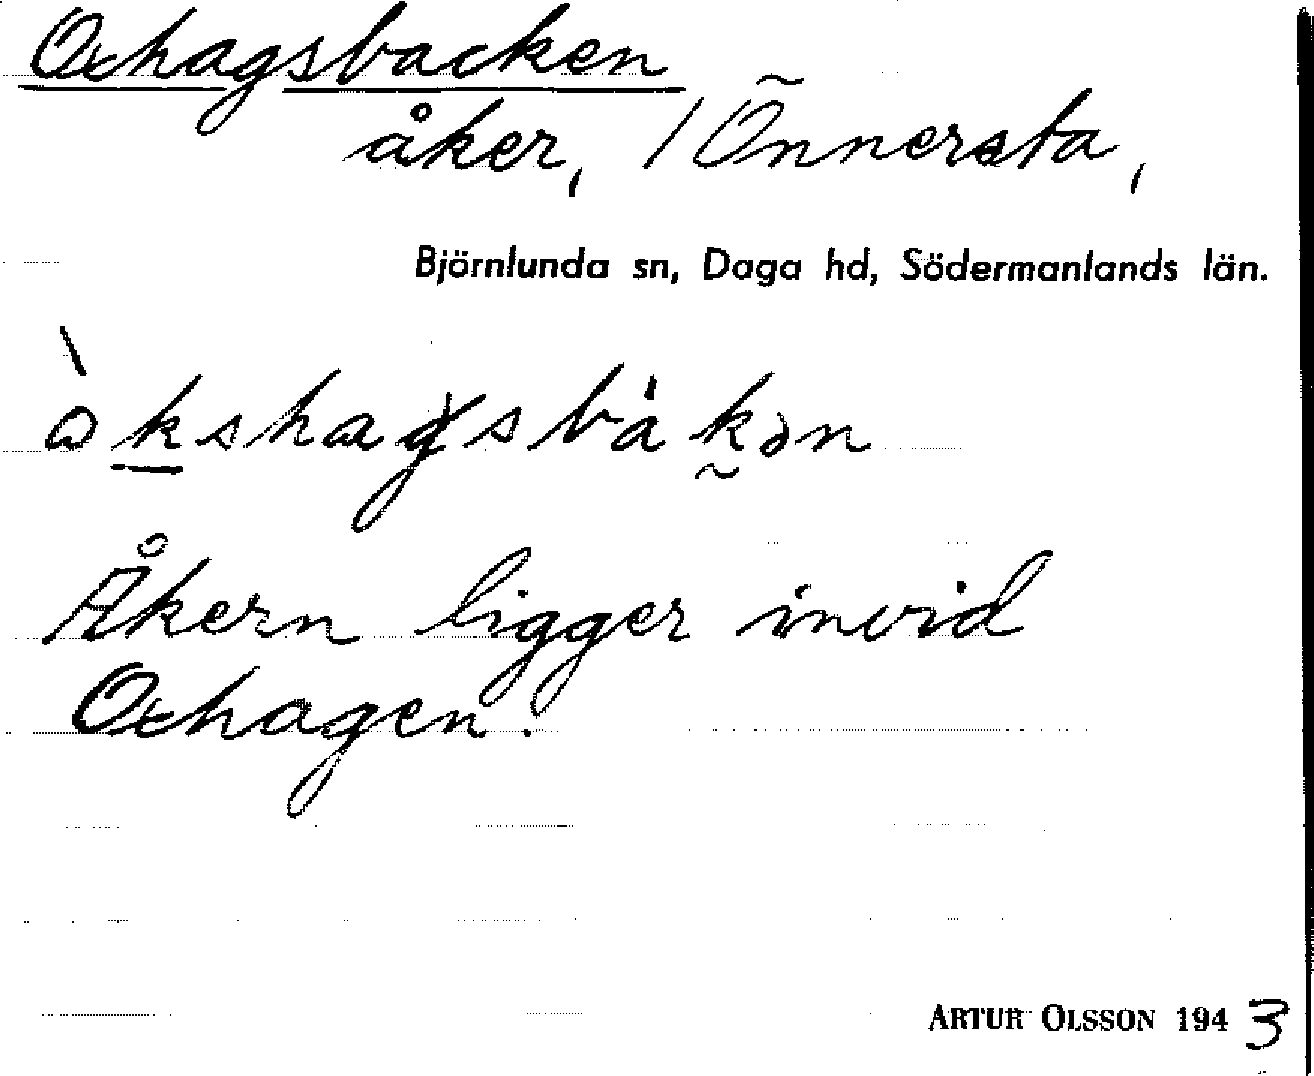 Oxhagsbacken
åker, / Önnersta,
Björnlunda sn, Daga hd, Södermanlands län.
òkshagsbákən
Åkern ligger invid
Oxhagen.
ARTUR OLSSON 1943